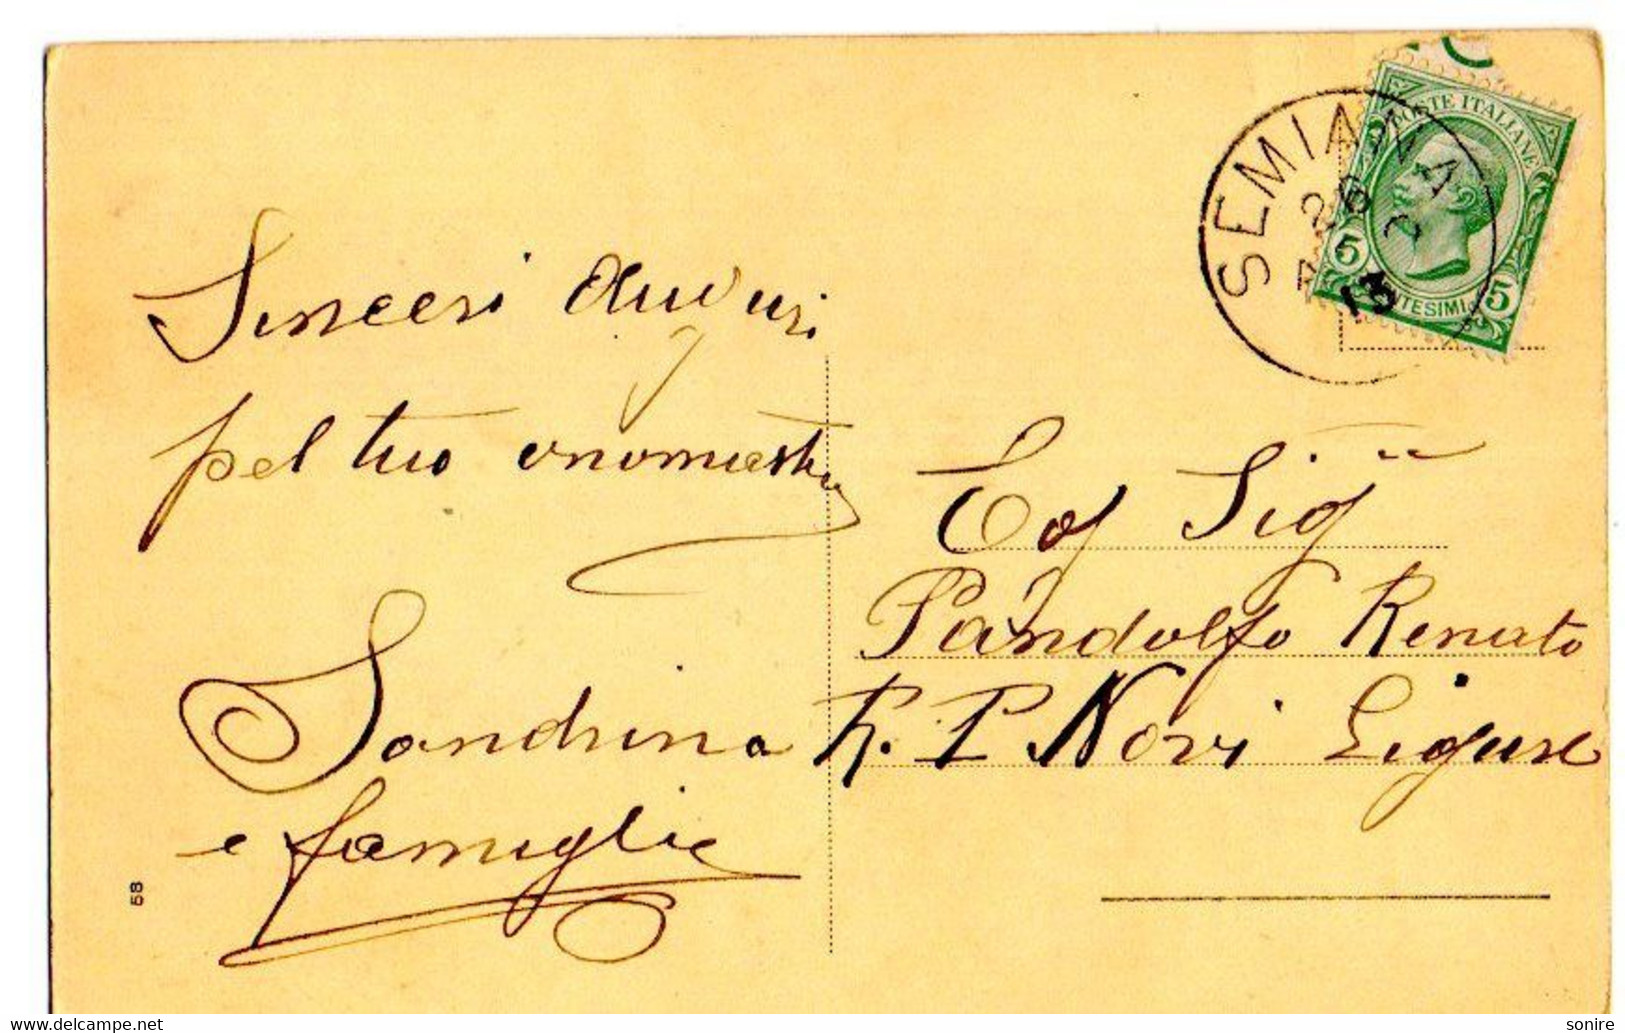 Sinceri auguri
pel tuo onomastico
Sandrina
e famiglie
58
POSTE ITALIANE
5 CENTESIMI 5
SEMIANA
26
2
13
Eg Sig
Pandolfo Renato
R. P Novi Ligure
delcampe.net
sonire